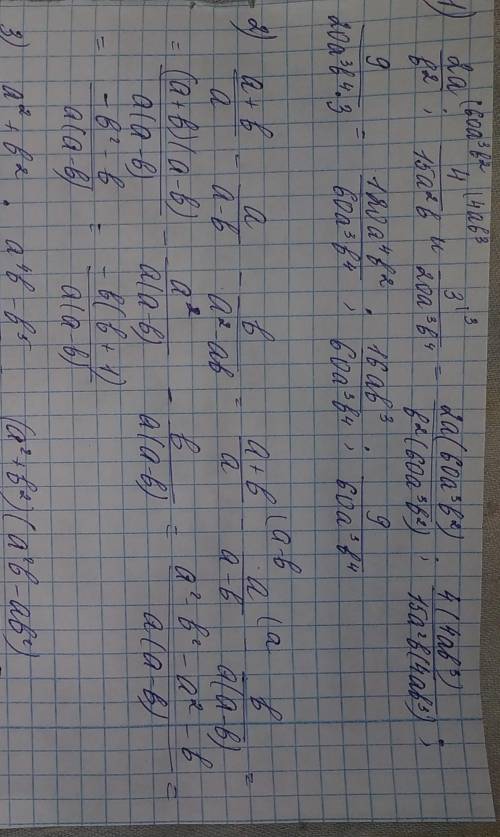 1) 2a/b² (60a³b² ; 4/15a²b (4ab³ и 3/20a³b⁴ (3 = 2a(60a³b²)/b²(60a³b²) ; 4(4ab³)/15a²b(4ab³) ;
9/20a³b⁴·3 = 120a⁴b²/60a³b⁴ ; 16ab³/60a³b⁴ ; 9/60a³b⁴
2) a+b/a − a/a-b − b/a²-ab = a+b/a (a-b − a/a-b (a − b/a(a-b) =
= (a+b)(a-b)/a(a-b) − a²/a(a-b) − b/a(a-b) = a²-b²-a²-b/a(a-b) =
= -b²-b/a(a-b) = -b(b+1)/a(a-b)
3) a²+b² · a⁴b-b⁵ (a²+b²)(a²b-ab²)